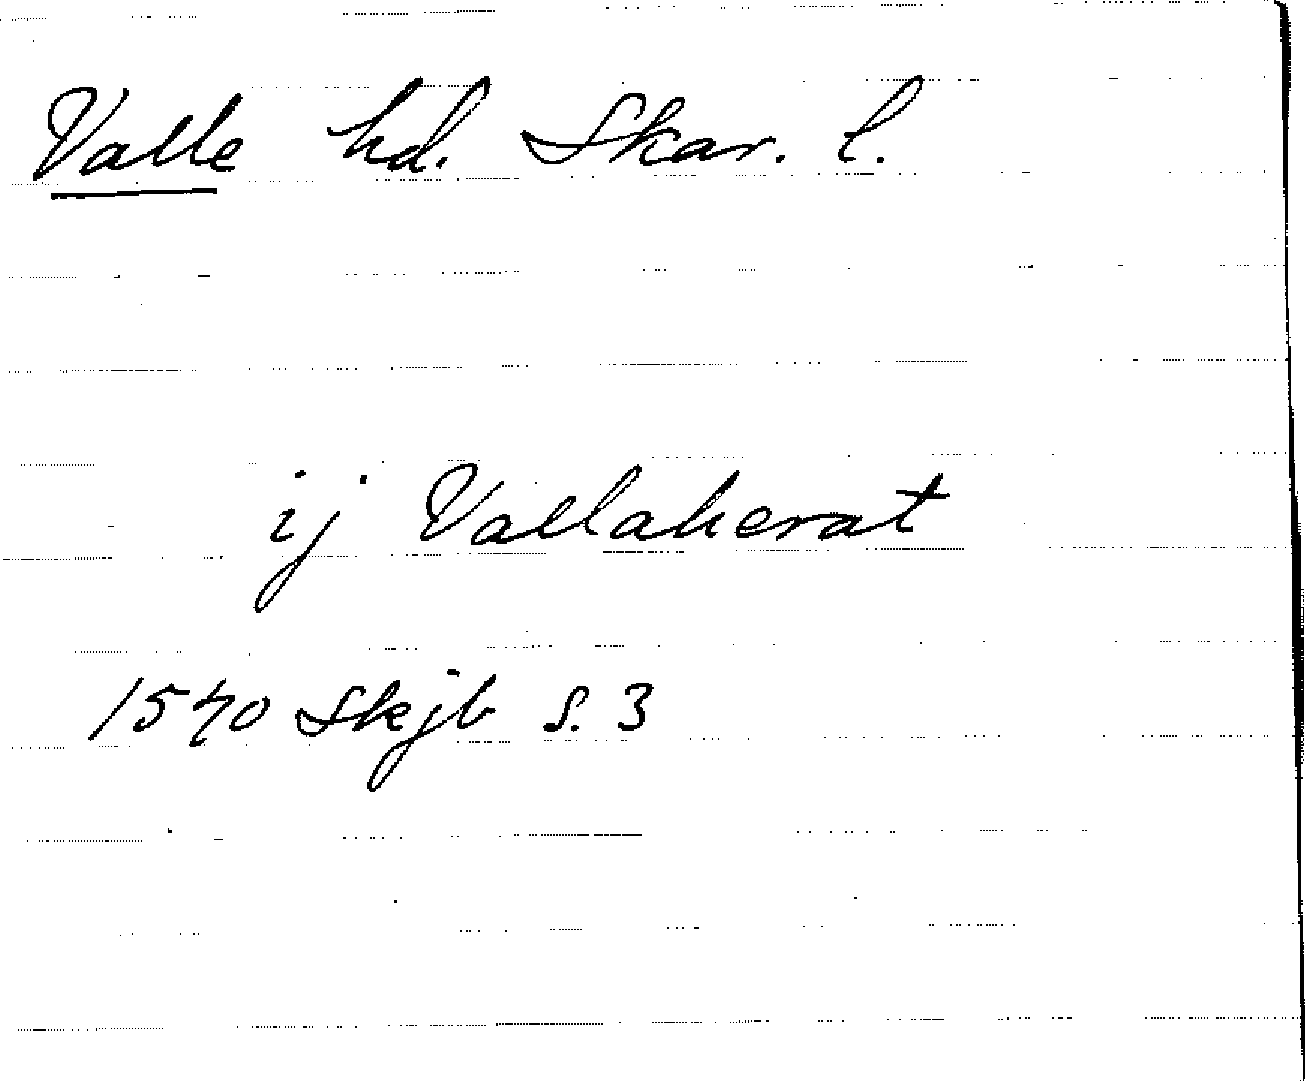 Valle hd. Skar. l.
ij Vallaherat
1540 Skjb s. 3